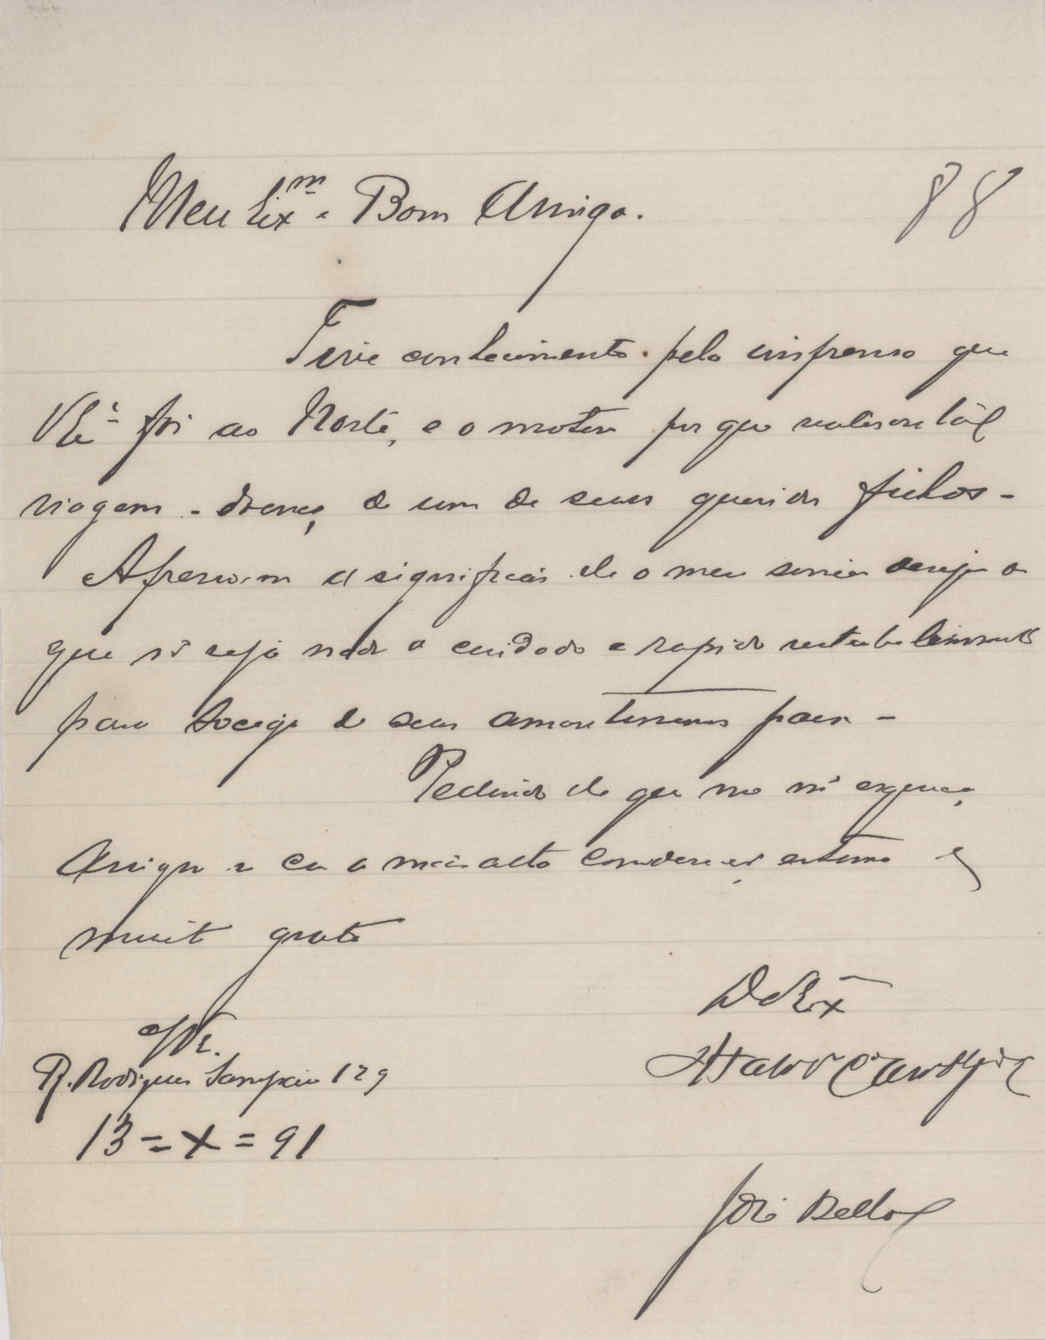 Meu Exm. Bom Amigo.
88
Tive conhecimento pela imprensa que
VExª foi ao Norte, e o motivo por que realisou tal
viagem - doença de um de seus queridos filhos -
Apresso-m a significar-lhe o meu sincero desejo
que só seja nada o cuidado e rapido restabelecimento
para socego de seus amantissimos paes -
Pedindo lhe que me não esqueça
Amigo e com a mais alta consideração estima e
muito grato
De VEx
R. Rodrigues Sampaio 129
13 = X = 91
João Bello